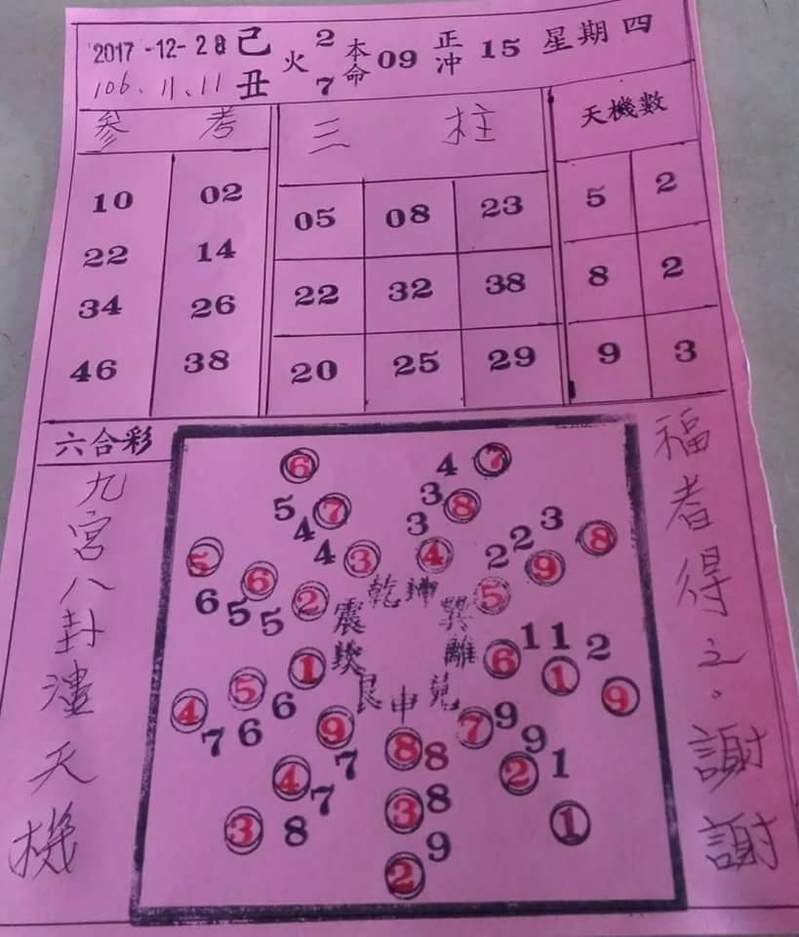 2017-12-28 己丑 火 2 7 本命 09 正冲 15 星期四
106、11、11
参考 三柱 天機數
10 02 05 08 23 5 2
22 14 22 32 38 8 2
34 26 20 25 29 9 3
46 38
六合彩
九宮八封漊天機
福者得之。謝謝
6 4 7
5 7 3 8
4 3 3 4
5 6 2 4 2 2 3 8
6 5 5 5 9
乾坤
震 巽
離
1 6 1 1 2
4 5 1 9
艮 中 兌
7 6 6 9 7 9
8 8 9
4 7 2 1
7 3 8
3 8 1
9
2